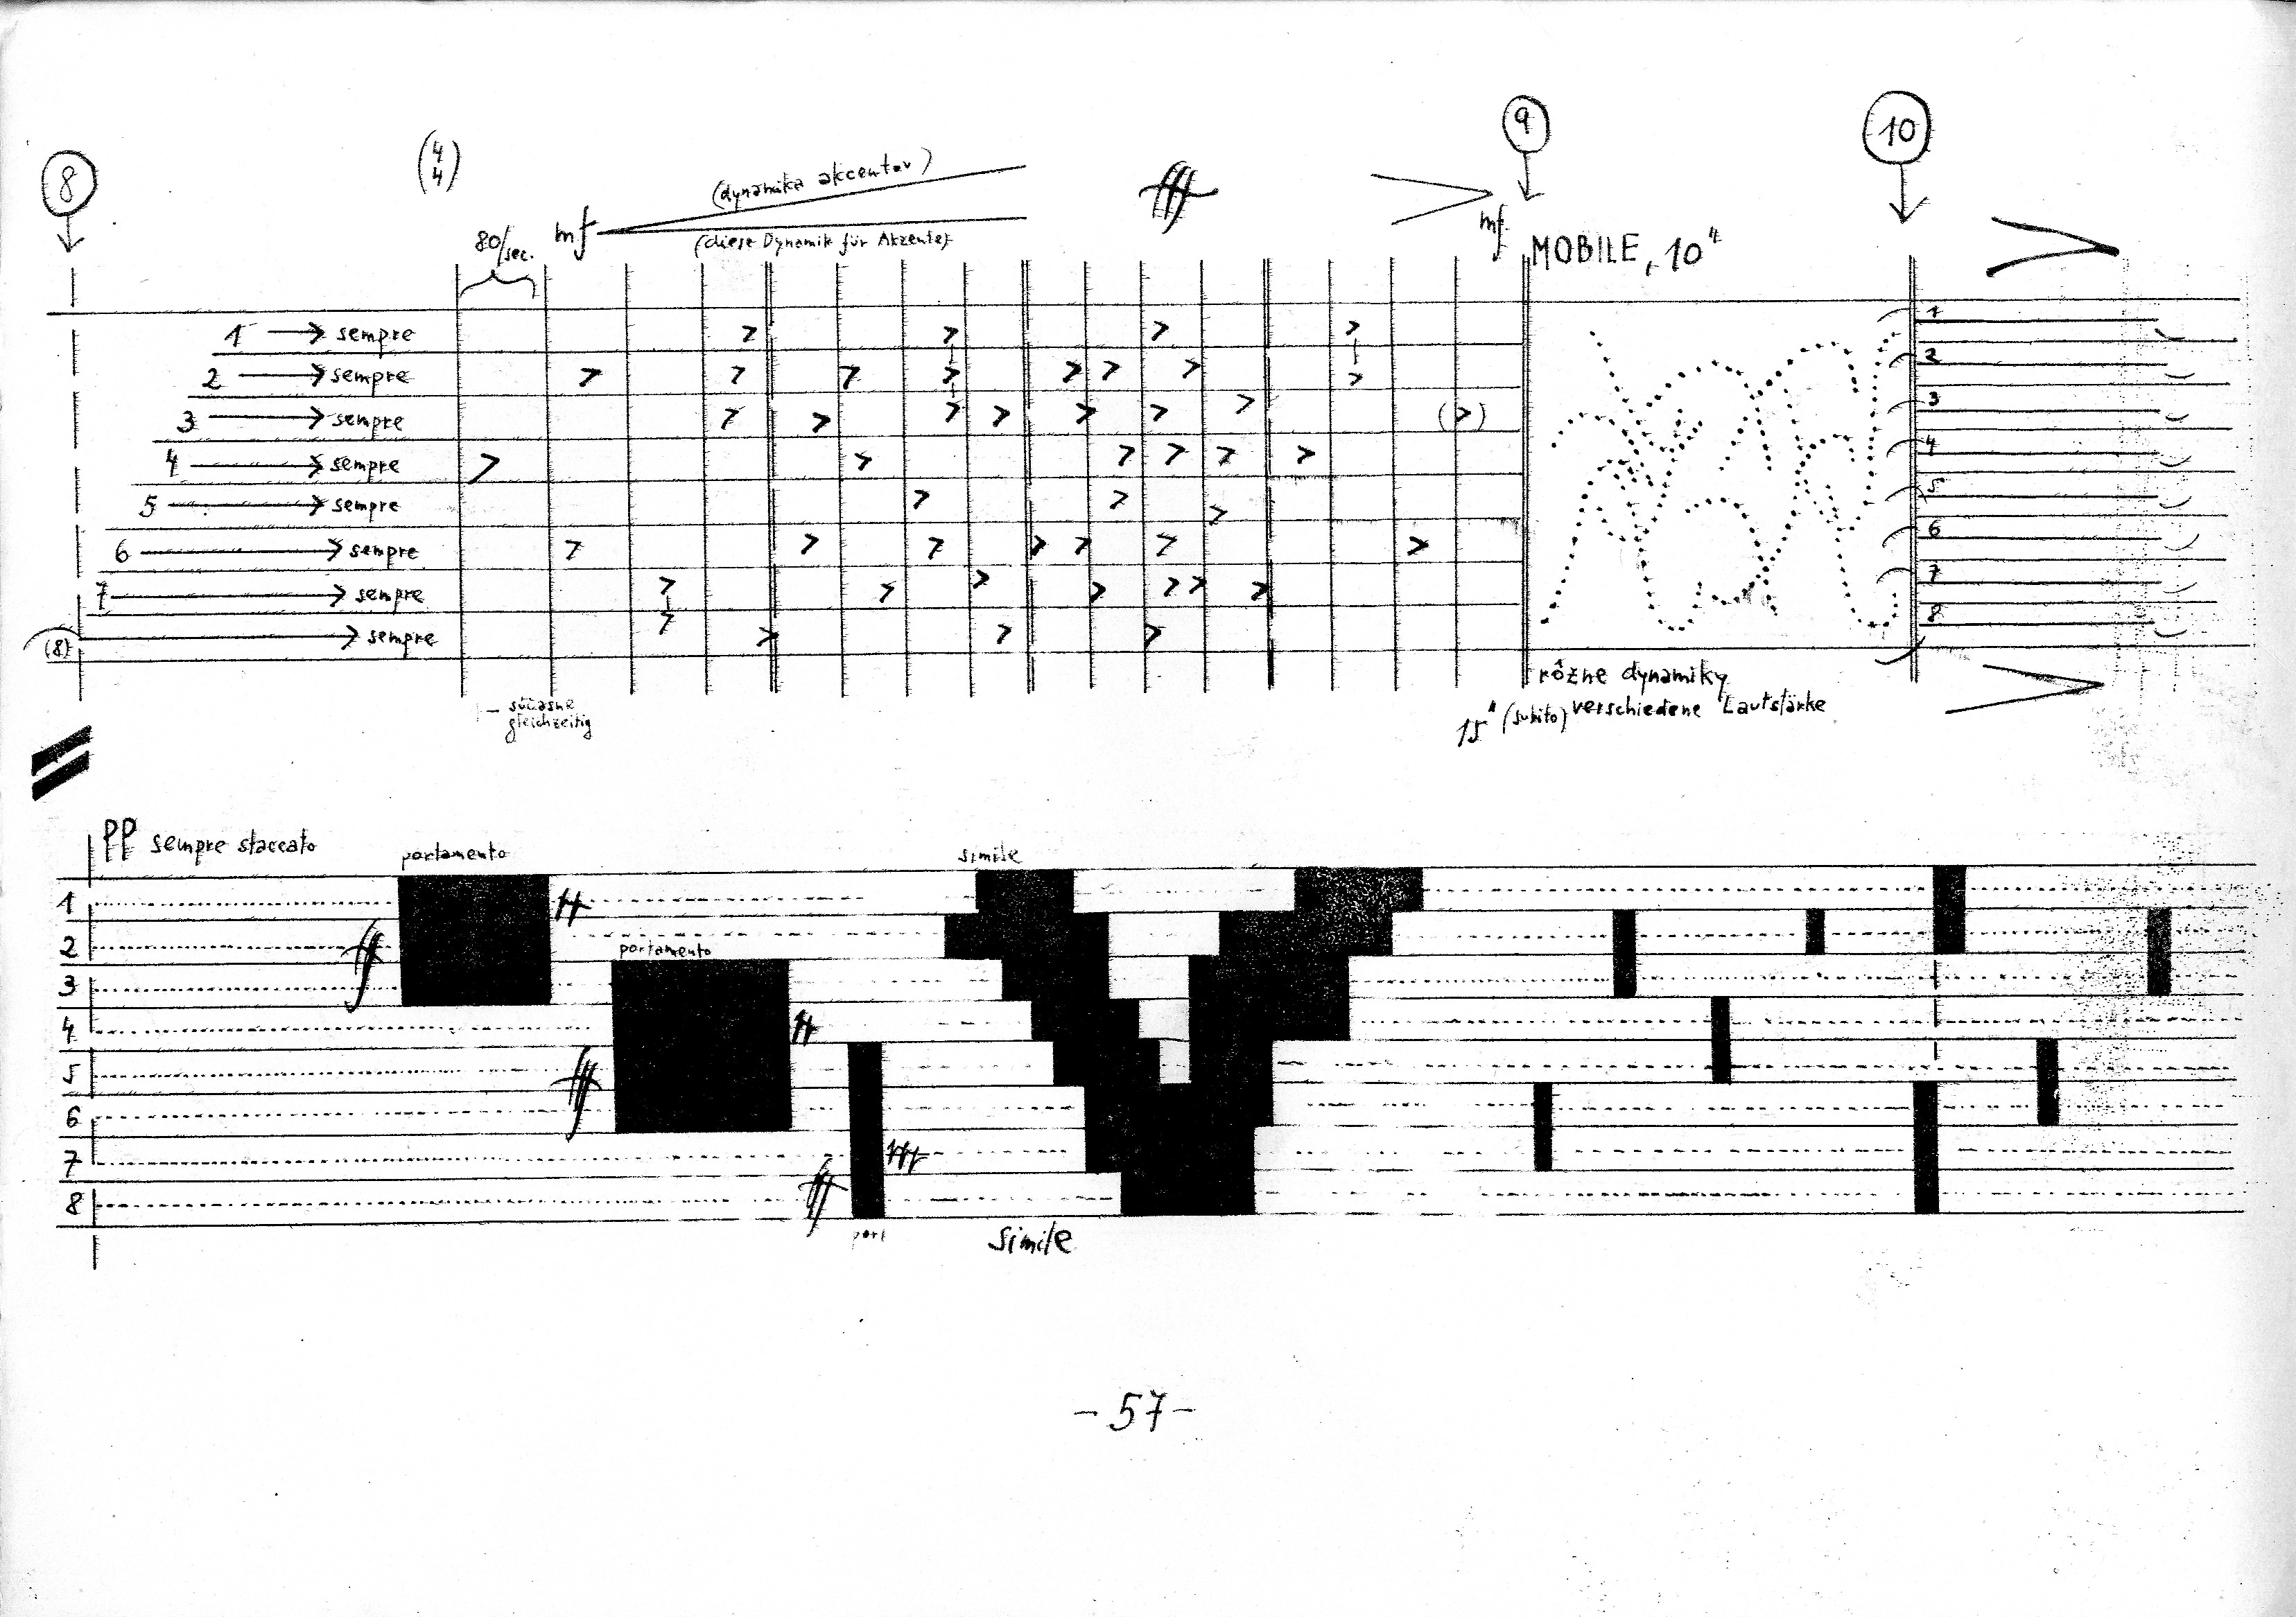 8
(4 4)
9
10
80/sec.
mf
(dynamika akcentov)
(diese Dynamik für Akzente)
fff
mf
MOBILE, 10"
1 → sempre
2 → sempre
3 → sempre
4 → sempre
5 → sempre
6 → sempre
7 → sempre
(8) → sempre
1
2
3
4
5
6
7
8
súčasne
gleichzeitig
rôzne dynamiky
15" (subito) verschiedene Lautstärke
PP sempre staccato
portamento
simile
1
2
ff
portamento
3
4
5
fff
6
7
8
fff
port
simile
- 57 -